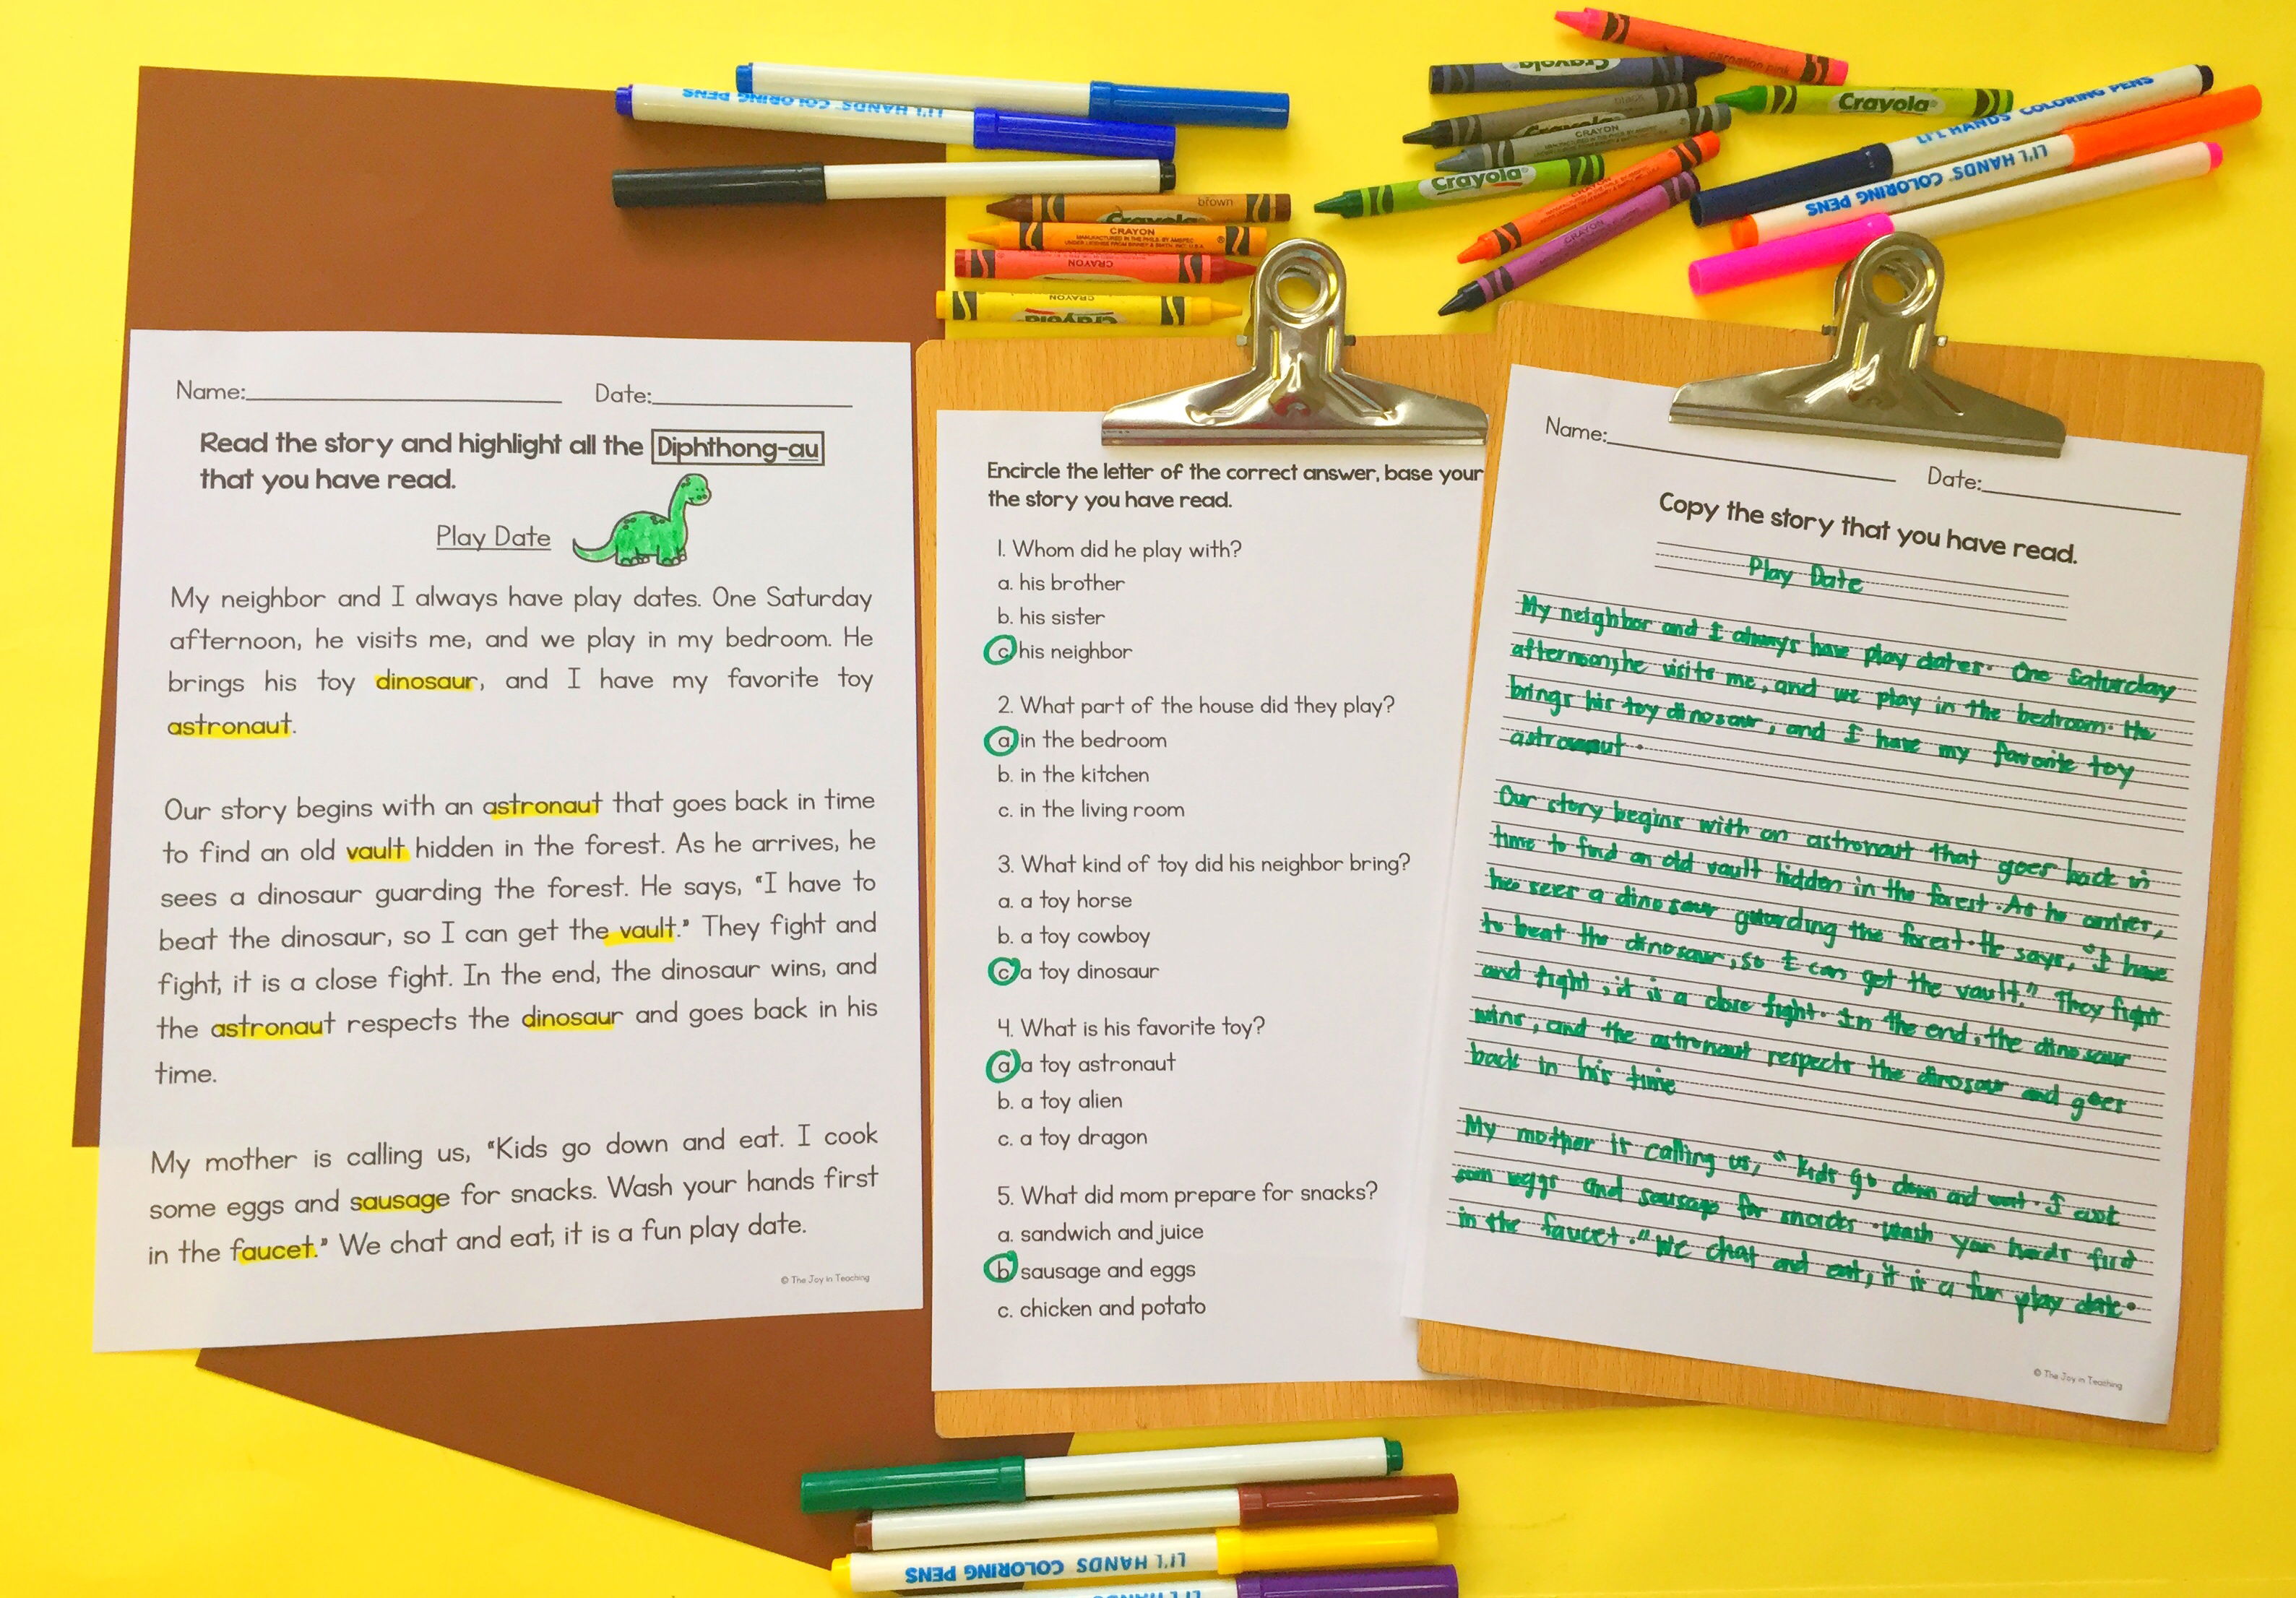 LI'L HANDS COLORING PENS
brown
Crayola
CRAYON
MANUFACTURED IN THE PHILS. BY AMSPEC
UNDER LICENSE FROM BINNEY & SMITH, INC. U.S.A.
CRAYON
CRAYON
Crayola
carnation pink
Crayola
black
Crayola
CRAYON
Crayola
Crayola
CRAYON
LI'L HANDS COLORING PENS
LI'L HANDS COLORING PENS
Name:
Date:
Read the story and highlight all the Diphthong-au
that you have read.
Play Date
My neighbor and I always have play dates. One Saturday
afternoon, he visits me, and we play in my bedroom. He
brings his toy dinosaur, and I have my favorite toy
astronaut.
Our story begins with an astronaut that goes back in time
to find an old vault hidden in the forest. As he arrives, he
sees a dinosaur guarding the forest. He says, "I have to
beat the dinosaur, so I can get the vault." They fight and
fight, it is a close fight. In the end, the dinosaur wins, and
the astronaut respects the dinosaur and goes back in his
time.
My mother is calling us, "Kids go down and eat. I cook
some eggs and sausage for snacks. Wash your hands first
in the faucet." We chat and eat, it is a fun play date.
© The Joy in Teaching
Encircle the letter of the correct answer, base your
the story you have read.
1. Whom did he play with?
a. his brother
b. his sister
c his neighbor
2. What part of the house did they play?
a in the bedroom
b. in the kitchen
c. in the living room
3. What kind of toy did his neighbor bring?
a. a toy horse
b. a toy cowboy
c a toy dinosaur
4. What is his favorite toy?
a a toy astronaut
b. a toy alien
c. a toy dragon
5. What did mom prepare for snacks?
a. sandwich and juice
b sausage and eggs
c. chicken and potato
Name:
Date:
Copy the story that you have read.
Play Date
My neighbor and I always have play dates. One Saturday
afternoon, he visits me, and we play in the bedroom. He
brings his toy dinosaur, and I have my favorite toy
astronaut.
Our story begins with an astronaut that goes back in
time to find an old vault hidden in the forest. As he arrives,
he sees a dinosaur guarding the forest. He says, "I have
to beat the dinosaur, so I can get the vault." They fight
and fight, it is a close fight. In the end, the dinosaur
wins, and the astronaut respects the dinosaur and goes
back in his time
My mother is calling us, "Kids go down and eat. I cook
som eggs and sausage for snacks. Wash your hands first
in the faucet." We chat and eat, it is a fun play date.
© The Joy in Teaching
LI'L HANDS COLORING PENS
LI'L HANDS